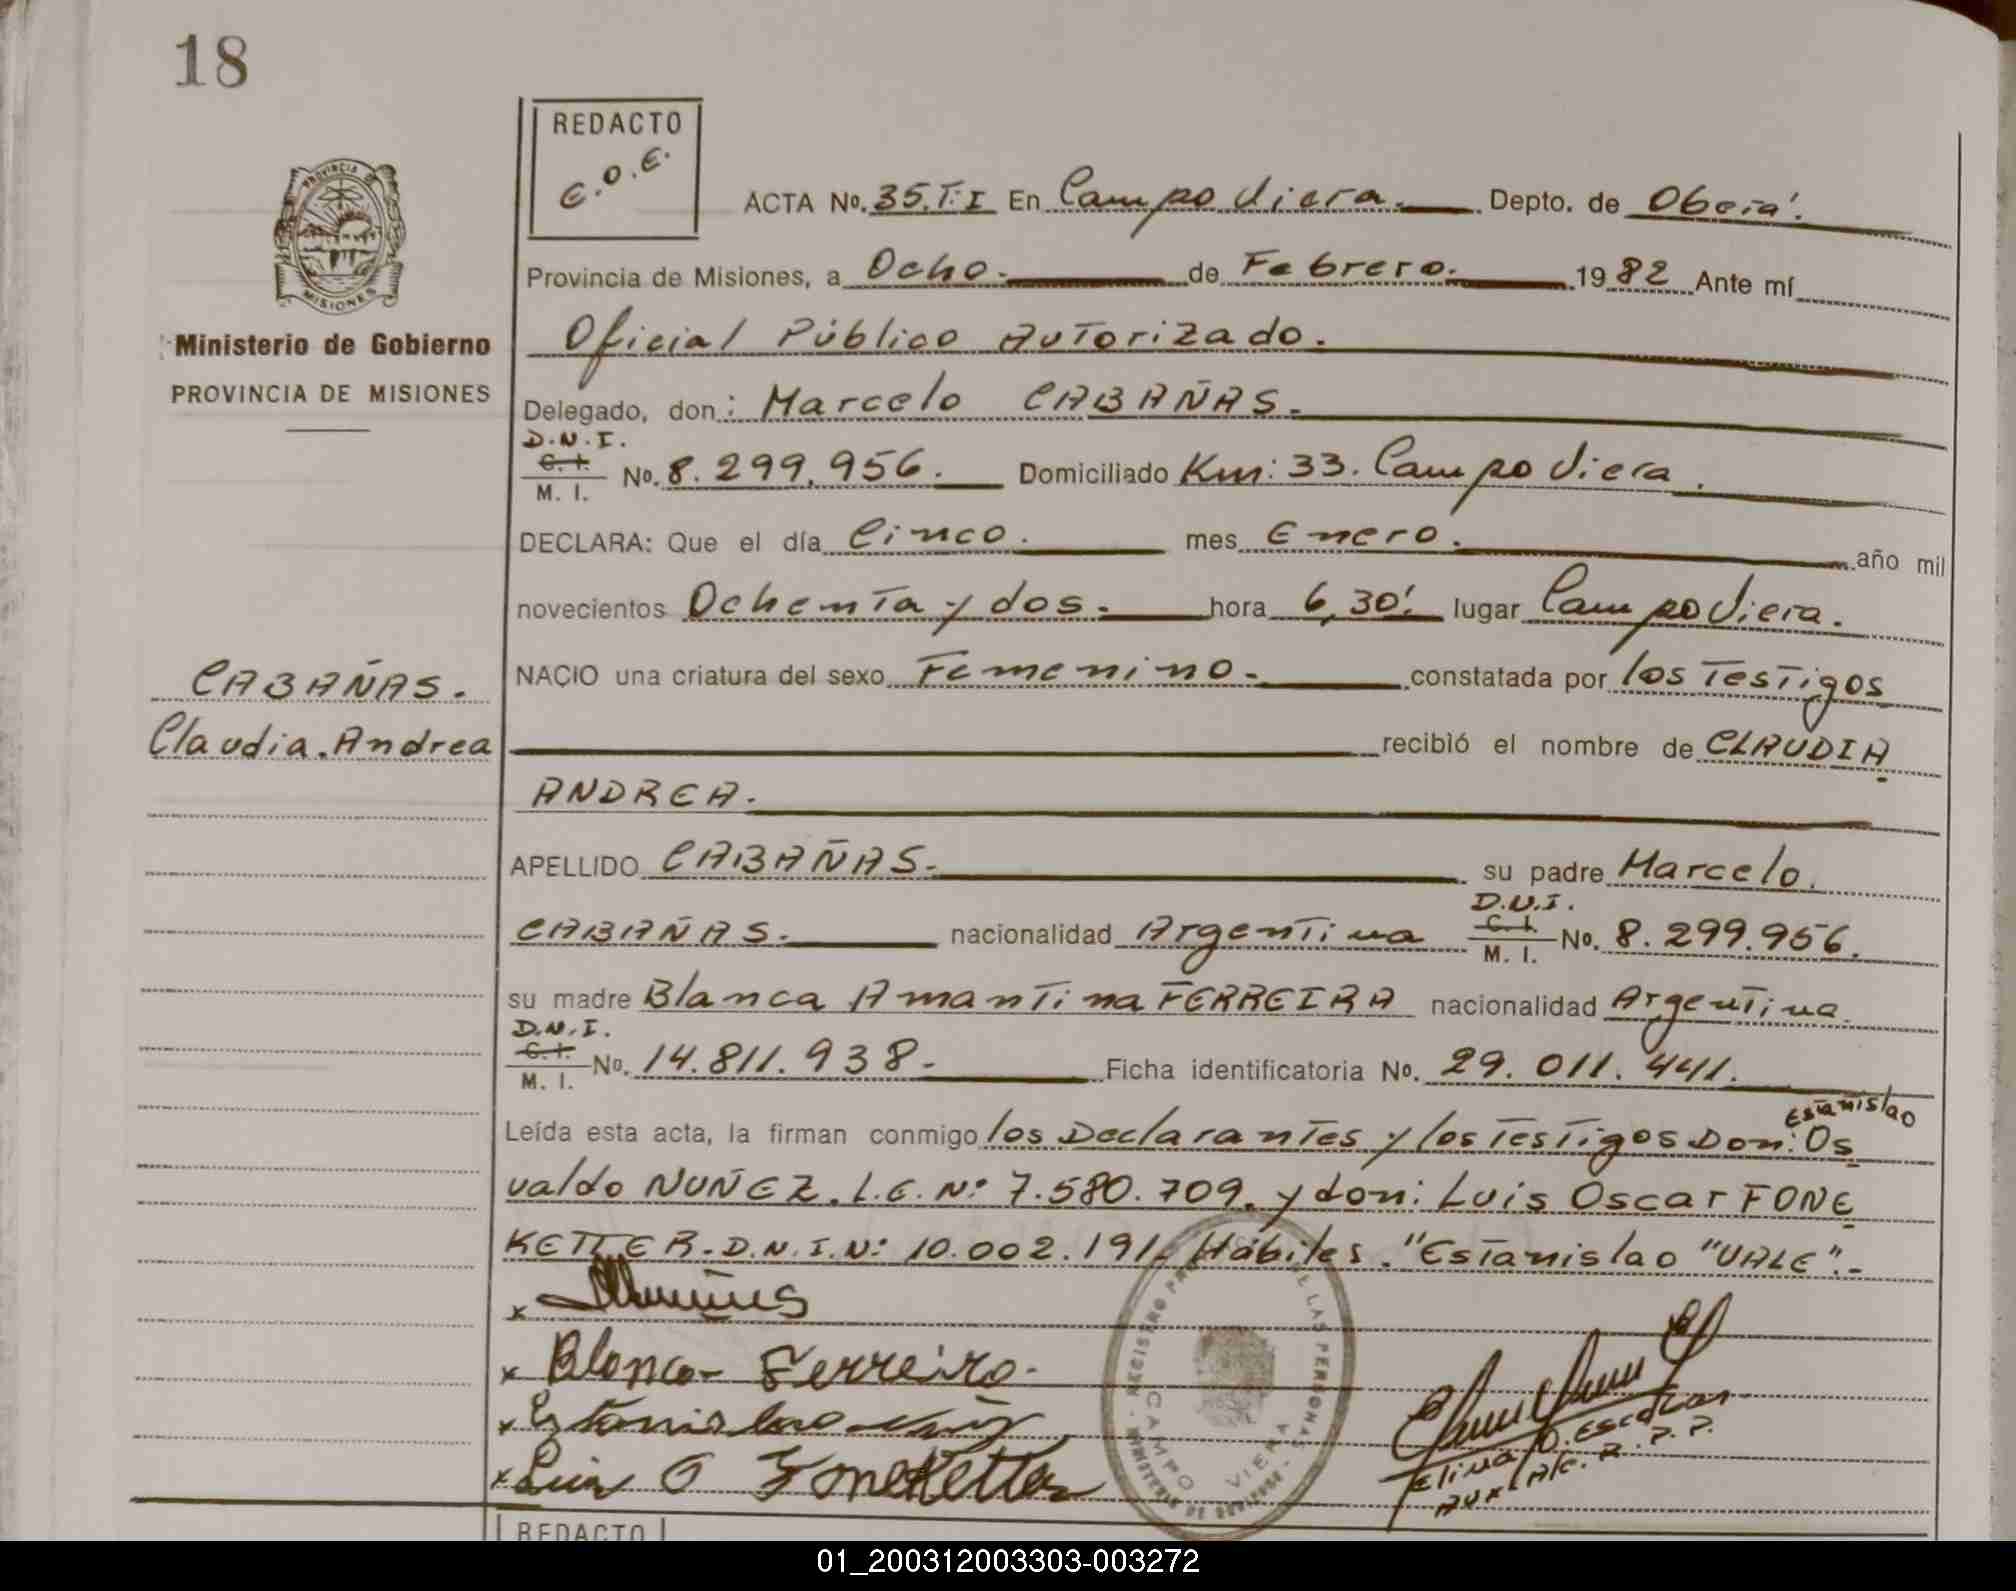 18
REDACTO
E.O.E.
PROVINCIA DE
MISIONES
Ministerio de Gobierno
PROVINCIA DE MISIONES
ACTA No. 35.T.I En Campo Viera. Depto. de Oberá.
Provincia de Misiones, a Ocho. de Febrero. 1982 Ante mí
Oficial Público Autorizado.
Delegado, don: Marcelo CABAÑAS.
D.N.I.
C. I.
M. I. No. 8.299.956. Domiciliado Km: 33. Campo Viera.
DECLARA: Que el día Cinco. mes Enero. año mil
novecientos Ochenta y dos. hora 6,30'. lugar Campo Viera.
CABAÑAS.
NACIO una criatura del sexo Femenino. constatada por los Testigos
Claudia. Andrea
recibió el nombre de CLAUDIA
ANDREA.
APELLIDO CABAÑAS. su padre Marcelo.
CABAÑAS. nacionalidad Argentina D.N.I. C. I. M. I. No. 8.299.956.
su madre Blanca Amantina FERREIRA nacionalidad Argentina.
D.N.I.
C. I.
M. I. No. 14.811.938. Ficha identificatoria No. 29.011.441.
Estanislao
Leída esta acta, la firman conmigo los Declarantes y los Testigos Don: Os
valdo NUÑEZ. L.E. Nº 7.580.709. y don: Luis Oscar FONE
KETTER. D.N.I. Nº 10.002.191. Hábiles. "Estanislao "VALE".-
x
x Blanca Ferreira.
x Estanislao
x Luis O Foneketter
REGISTRO DE LAS PERSONAS
MINISTERIO DE GOBIERNO
CAMPO VIERA
Elina O. Escobar
REDACTO
01_200312003303-003272